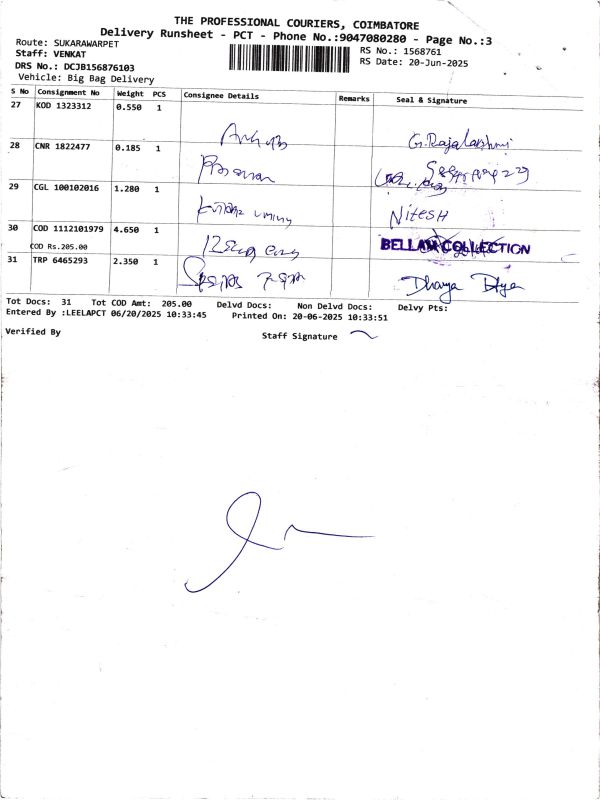 THE PROFESSIONAL COURIERS, COIMBATORE
Delivery Runsheet - PCT - Phone No.:9047080280 - Page No.:3
Route: SUKARAWARPET
Staff: VENKAT
DRS No.: DCJB156876103
Vehicle: Big Bag Delivery
RS No.: 1568761
RS Date: 20-Jun-2025
S No Consignment No Weight PCS Consignee Details Remarks Seal & Signature
27 KOD 1323312 0.550 1 G.Rajalakshmi
28 CNR 1822477 0.185 1
29 CGL 100102016 1.280 1 NITESH
30 COD 1112101979 4.650 1 BELLAM COLLECTION
COD Rs.205.00
31 TRP 6465293 2.350 1 Dhavya
Tot Docs: 31 Tot COD Amt: 205.00 Delvd Docs: Non Delvd Docs: Delvy Pts:
Entered By :LEELAPCT 06/20/2025 10:33:45 Printed On: 20-06-2025 10:33:51
Verified By Staff Signature